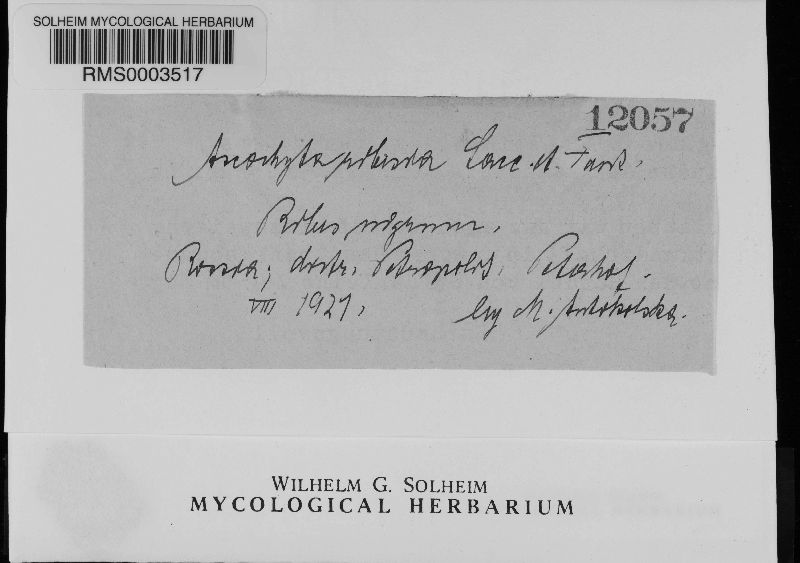 SOLHEIM MYCOLOGICAL HERBARIUM
RMS0003517
12057
Ascochyta ribesia Sacc. et Fautr.
Ribes nigrum.
Rossia; distr. Petropolis, Peterhof.
VIII 1927, leg M. Antokolska.
WILHELM G. SOLHEIM
MYCOLOGICAL HERBARIUM